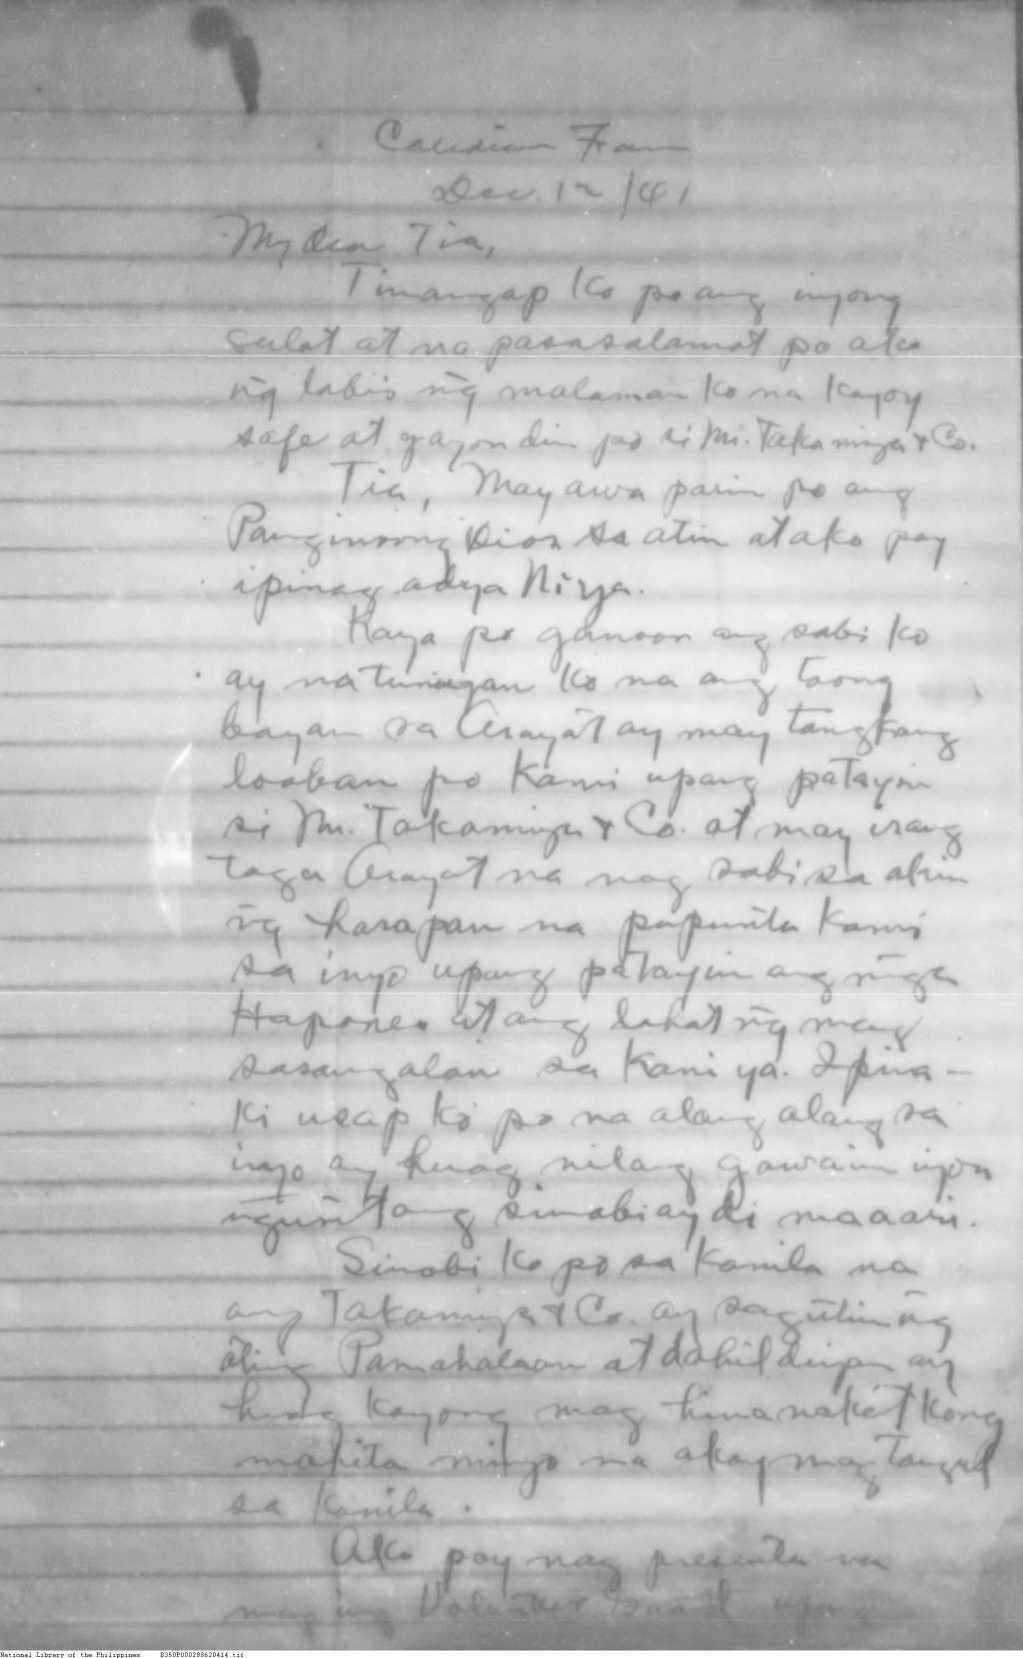 Dec. 12/41
My dear Tia,
Tinangap ko po ang inyong
sulat at na pasasalamat po ako
ñg labis ñg malaman ko na kayoy
safe at gayon din po si Mr. Takamiya & Co.
Tia, May awa parin po ang
Panginoong Dios sa atin at ako poy
ipinag adya Niya.
Kaya po ganoon ang sabi ko
ay natunugan ko na ang taong
bayan sa Arayat ay may tangkang
looban po kami upang patayin
si Mr. Takamiya & Co. at may isang
taga Arayat na nag sabi sa akin
ñg harapan na pupunta kami
sa inyo upang patayin ang ñga
Hapones at ang lahat ñg mag
sasangalan sa kaniya. Ipina-
ki usap ko po na alang alang sa
inyo ay huag nilang gawain iyon
ñgunit ang sinabi ay di maaari.
Sinabi ko po sa kanila na
ang Takamiya & Co. ay sagutin ñg
ating Pamahalaan at dahil diyan ay
huag kayong mag hinanakit kong
makita ninyo na akay mag tangul
sa kanila.
Ako poy nag presenta na
maging Volunteer Guard upang